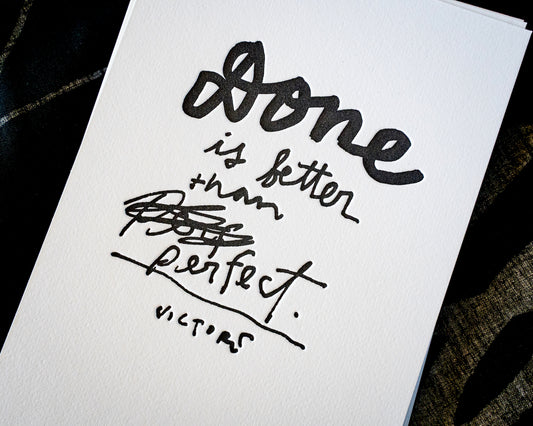 Done
is better
than
perfect.
VICTORE